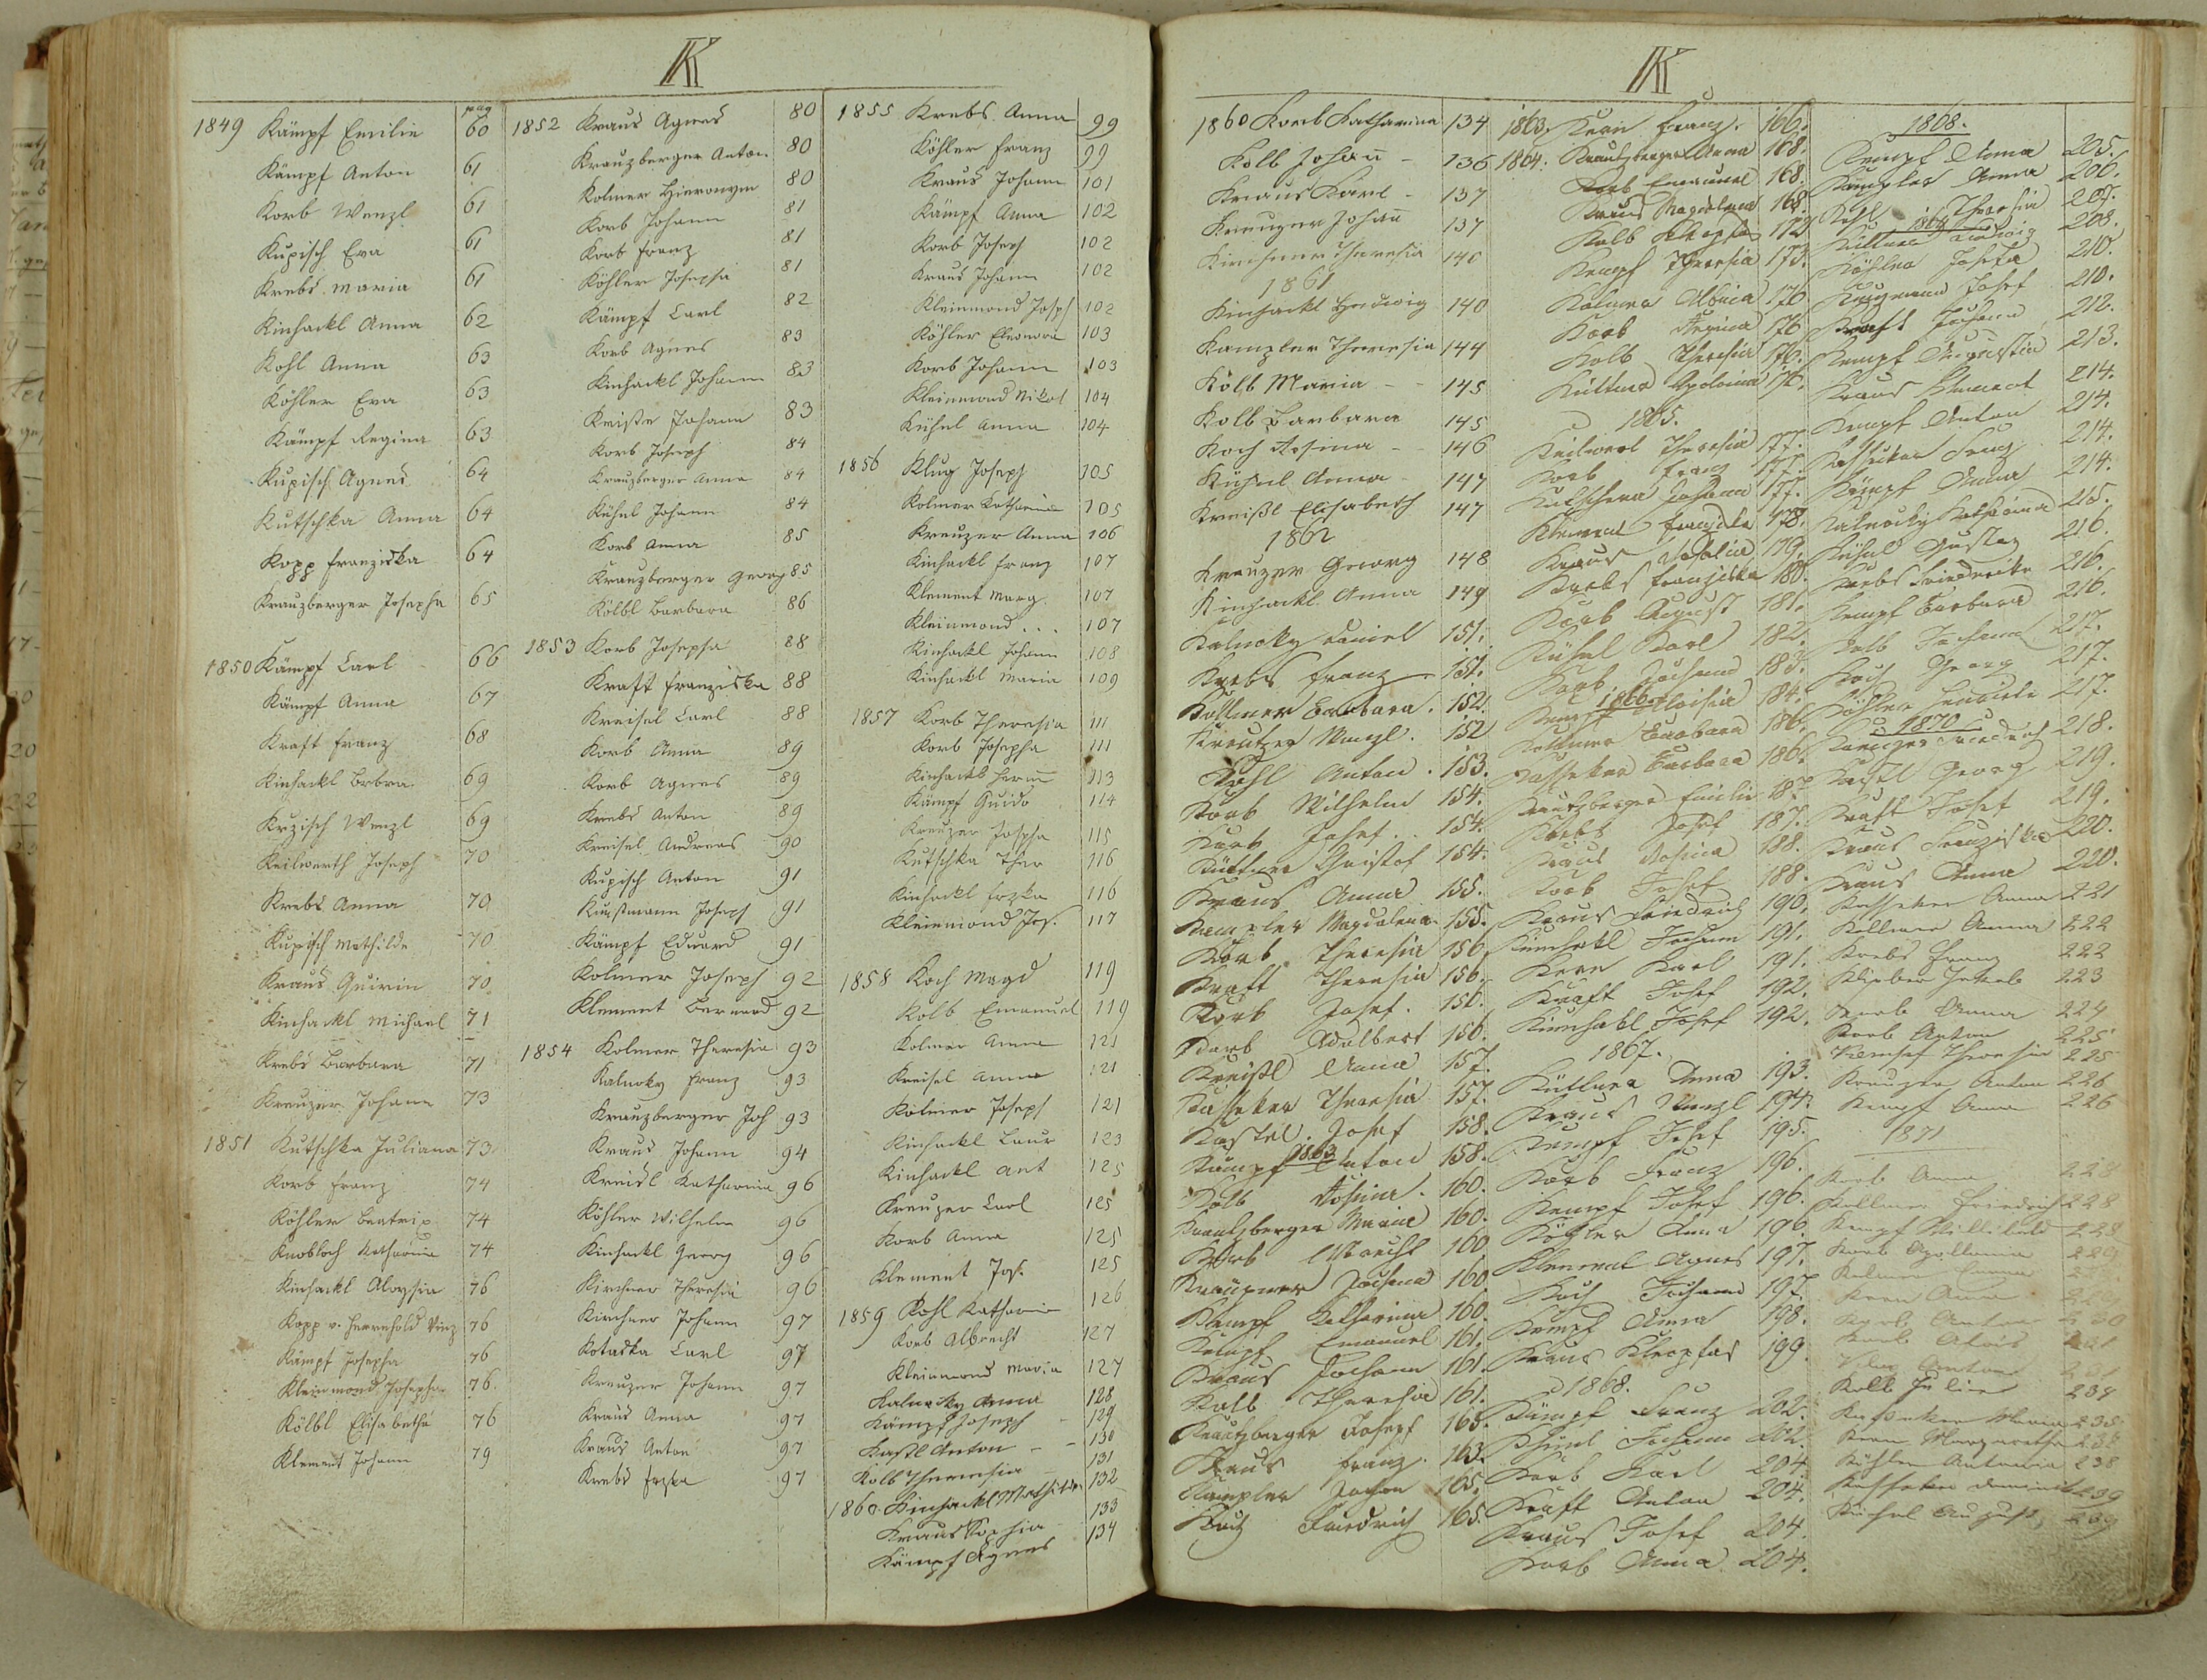 K
pag
1849 Kämpf Emilie 60
Kämpf Anton 61
Korb Wenzl 61
Kupisch Eva 61
Krebs Maria 61
Kinhackl Anna 62
Kohl Anna 63
Köhler Eva 63
Kämpf Regina 63
Kupisch Agnes 64
Kutschka Anna 64
Kopp Franziska 64
Kreuzberger Josepha 65
1850 Kämpf Carl 66
Kämpf Anna 67
Kraft Franz 68
Kinhackl Brbra 69
Wenzl 69
Keilwerth Joseph 70
Krebs Anna 70
Kupisch Mathilde 70
Kraus Quirin 70
Kinhackl Michael 71
Krebs Barbara 71
Kreuzer Johann 73
1851 Kutschka Juliana 73
Korb Franz 74
Köhler Beatrix 74
Knobloch Katharina 74
Kinhackl Aloysia 76
Kopp v. Vinz 76
Kämpf Josepha 76
Kleinmond Josepha 76
Kölbl Elisabetha 76
Klement Johann 79
1852 Kraus Agnes 80
Kreuzberger Anton 80
Kolmer Hieronym 80
Korb Johann 81
Korb Franz 81
Köhler Josepha 81
Kämpf Carl 82
Korb Agnes 83
Kinhackl Johann 83
Johann 83
Korb Joseph 84
Kreuzberger Anna 84
Kühnl Johann 84
Korb Anna 85
Kreuzberger Georg 85
Kölbl Barbara 86
1853 Korb Josepha 88
Kraft Franziska 88
Kreisel Carl 88
Korb Anna 89
Korb Agnes 89
Krebs Anton 89
Kreisel Andreas 90
Kupisch Anton 91
Joseph 91
Kämpf Eduard 91
Kolmer Joseph 92
Klement Bernard 92
1854 Kolmer Theresia 93
Kalnoky Franz 93
Kreuzberger Joh 93
Kraus Johann 94
Kreisl Katharina 96
Köhler Wilhelm 96
Kinhackl Georg 96
Kirchner Theresia 96
Kirchner Johann 97
Carl 97
Kreuzer Johann 97
Kraus Anna 97
Kraus Anton 97
Krebs Frzka 97
1855 Krebs Anna 99
Köhler Franz 99
Kraus Johann 101
Kämpf Anna 102
Korb Joseph 102
Kraus Johann 102
Kleinmond Josph 102
Köhler Eleonora 103
Korb Johann 103
Kleinmond Nikol 104
Kühnl Anna 104
1856 Klug Joseph 105
Kolmer Katharina 105
Kreuzer Anna 106
Kinhackl Franz 107
Klement Marg. 107
Kleinmond . . . 107
Kinhackl Johann 108
Kinhackl Maria 109
1857 Korb Theresia 111
Korb Josepha 111
Kinhackl 113
Kämpf Guido 114
Kreuzer Josepha 115
Kutschka Ther 116
Kinhackl Frzka 116
Kleinmond Jos. 117
1858 Koch Magd 119
Kolb Emanuel 119
Kolmer Anna 121
Kreisel Anna 121
Kolmer Joseph 121
Kinhackl Laur 123
Kinhackl Ant 125
Kreuzer Carl 125
Korb Anna 125
Klement Jos. 125
1859 Kohl Katharin 126
Korb Albrecht 127
Kleinmond Maria 127
Kalnoky Anna 128
Kämpf Joseph - 129
Kaßl Anton - - 130
Kolb Theresia - 131
1860. Kinhackl Mathilde 132
Kraus Sophia 133
Kämpf Agnes 134
K
1860 Korb Katharina 134
Kolb Johann - 136
Kraus Karl - 137
Kreuzer Johann 137
Kirchner Theresia 140
1861
Kinhackl Hedwig 140
Kampler Theresia 144
Kolb Maria - - 145
Kolb Barbara 145
Koch Rosina - 146
Kühnl Anna 147
Kreißl Elisabeth 147
1862
Kreuzer Georg 148
Kinhackl Anna 149
Kalnoky Daniel 151.
Krebs Franz 151.
Kollmer Barbara. 152.
Kreutzer Wenzl. 152
Kohl Anton. 153.
Korb Wilhelm 154.
Korb Josef. . 154.
Küttner Christof 154.
Kraus Anna 155.
Kampler Magdalena 155.
Korb Theresia 156
Kraft Theresia 156.
Korb Josef. 156.
Korb Adalbert 156.
Kreißl Anna 157.
Kasseker Theresia 157.
Josef 158.
1863
Kämpf Anton 158.
Kolb Rosina. 160.
Kreutzberger Maria 160.
Korb 160.
Johann 160.
Kämpf Katharina 160.
Kämpf Emanuel 161.
Kraus Johann 161.
Kolb Theresia 161.
Kreutzberger Josef 163.
Kraus Franz. 163.
Kampler 165.
Koch Friedrich 165.
1863. Kern Franz. 166.
1864. Kreutzberger Anna 168.
Korb Emanuel 168.
Kraus Magdalena 168.
Kolb 172
Kempf Theresia 173.
Kolmer Albina 176
Korb Regina 176
Kolb Theresia 176.
Küttner Apolonia 176.
1865.
Keilwert Theresia 177.
Korb Franz 177.
Kutschera Johann 177.
Klement Franziska 178.
Kraus 179.
Krebs Franziska 180.
Korb August 181.
Kühnl Karl 182.
Korb Johann 183.
1866.
Kempf Aloisia 184.
Kollmer Barbara 186.
Kasseker Barbara 186.
Kreutzberger Emilie 187.
Krebs Josef 187.
Kraus Rosina 188.
Korb Josef 188.
Kraus Friedrich 190.
Kinhakl Johann 191.
Kern Karl 191.
Kraft Josef 192.
Kinhakl Josef 192.
1867.
Küttner Anna 193.
Kraus Wenzl 194.
Kempf Josef 195.
Korb Franz 196.
Kempf Josef 196.
Köhler Anna 196.
Klement Agnes 197.
Koch Johann 197.
Kempf Anna 198.
Kraus Kleophas 199.
1868.
Kämpf Franz 202.
Kühnl Johann 202.
Korb Karl 204.
Kraft Anton 204.
Kraus Josef 204.
Korb Anna 204.
1868.
Kempf Anna 205.
Kampler Anna 206.
Kohl Theresia 207.
1869
Küttner Ludwig 208.
Köhler Josefa 210.
Josef 210.
Kraft Johann 212.
Kempf Augustin 213.
Kraus 214.
Kempf Anton 214.
Kasseker Franz 214.
Kämpf Anna 214.
Kalnocky Katharina 215.
Kühnl Gustav 216.
Krebs Friedrike 216.
Kempf Barbara 216.
Kolb Johann 217.
Koch Georg 217.
Köhler 217.
1870
Kreuzer Friedrich 218.
Kaßl Georg 219.
Kraft Josef 219.
Kraus Franziska 220.
Kraus Anna 220.
Kasseker Anna 221
Kollmer Anna 222
Krebs Franz 222
Jakob 223
Korb Anna 224
Korb Anton 225
Theresia 225
Kreuzer Anton 226
Kempf Anna 226
1871
Korb Anna 228
Kollmer Friedrich 228
Kempf Willibald 228
Korb Apollonia 229
Kern Anna
Korb Anton 230
Korb Alois
Anton
Kolb Julie 234
Kasseker Maria 235
Kern Margaretha 238
Köhler Antonia 238
Kasseker Dominik 239
Kühnl August 239